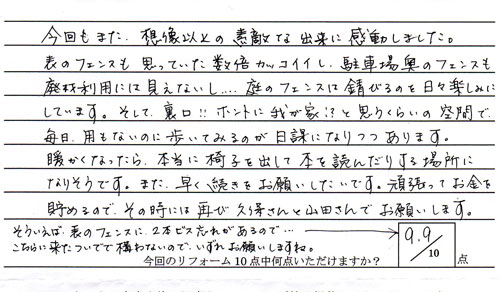 今回もまた、想像以上の素敵な出来に感動しました。
表のフェンスも思っていた数倍カッコイイし、駐車場奥のフェンスも
廃材利用には見えないし.... 庭のフェンスは錆びるのを日々楽しみに
しています。そして、裏口!! ホントに我が家!?と思うくらいの空間で、
毎日、用もないのに歩いてみるのが日課になりつつあります。
暖かくなったら、本当に椅子を出して本を読んだりする場所に
なりそうです。また、早く続きをお願いしたいです。頑張ってお金を
貯めるので、その時には再び久保さんと山田さんでお願いします。
そういえば、表のフェンスに、2本ビス忘れがあるので…
こちらに来たついでで構わないので、いずれお願いしますね。
今回のリフォーム10点中何点いただけますか? 9.9/10 点